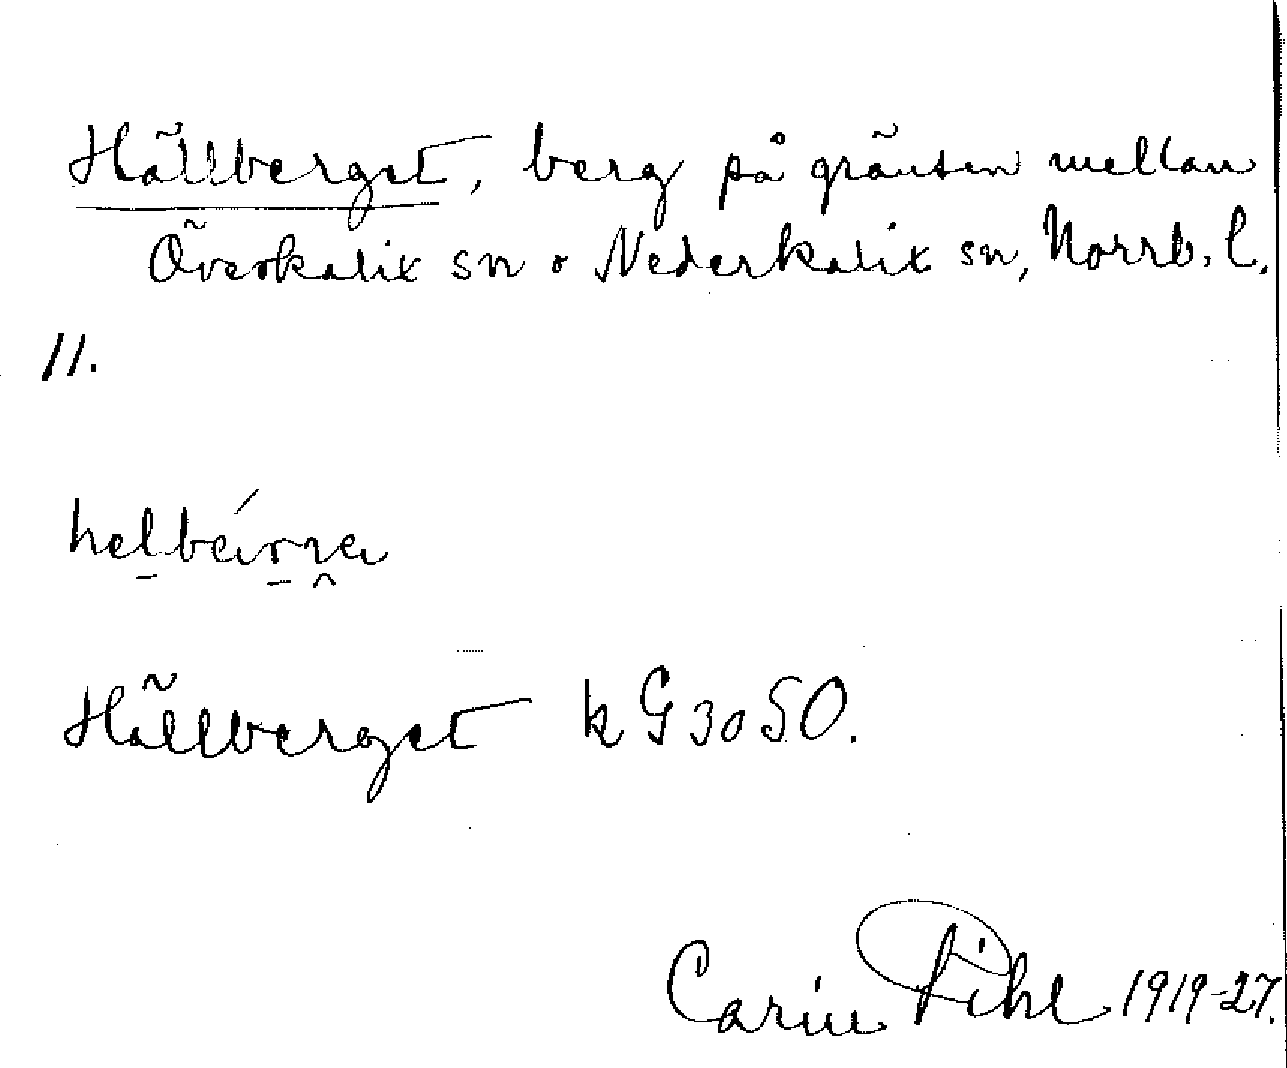 Hällberget, berg på gränsen mellan
Överkalix sn o Nederkalix sn, Norrb. l.
11.
hel̠bér̠ɳ̭e
Hällberget kG3050.
Carin Pihl 1919-27.